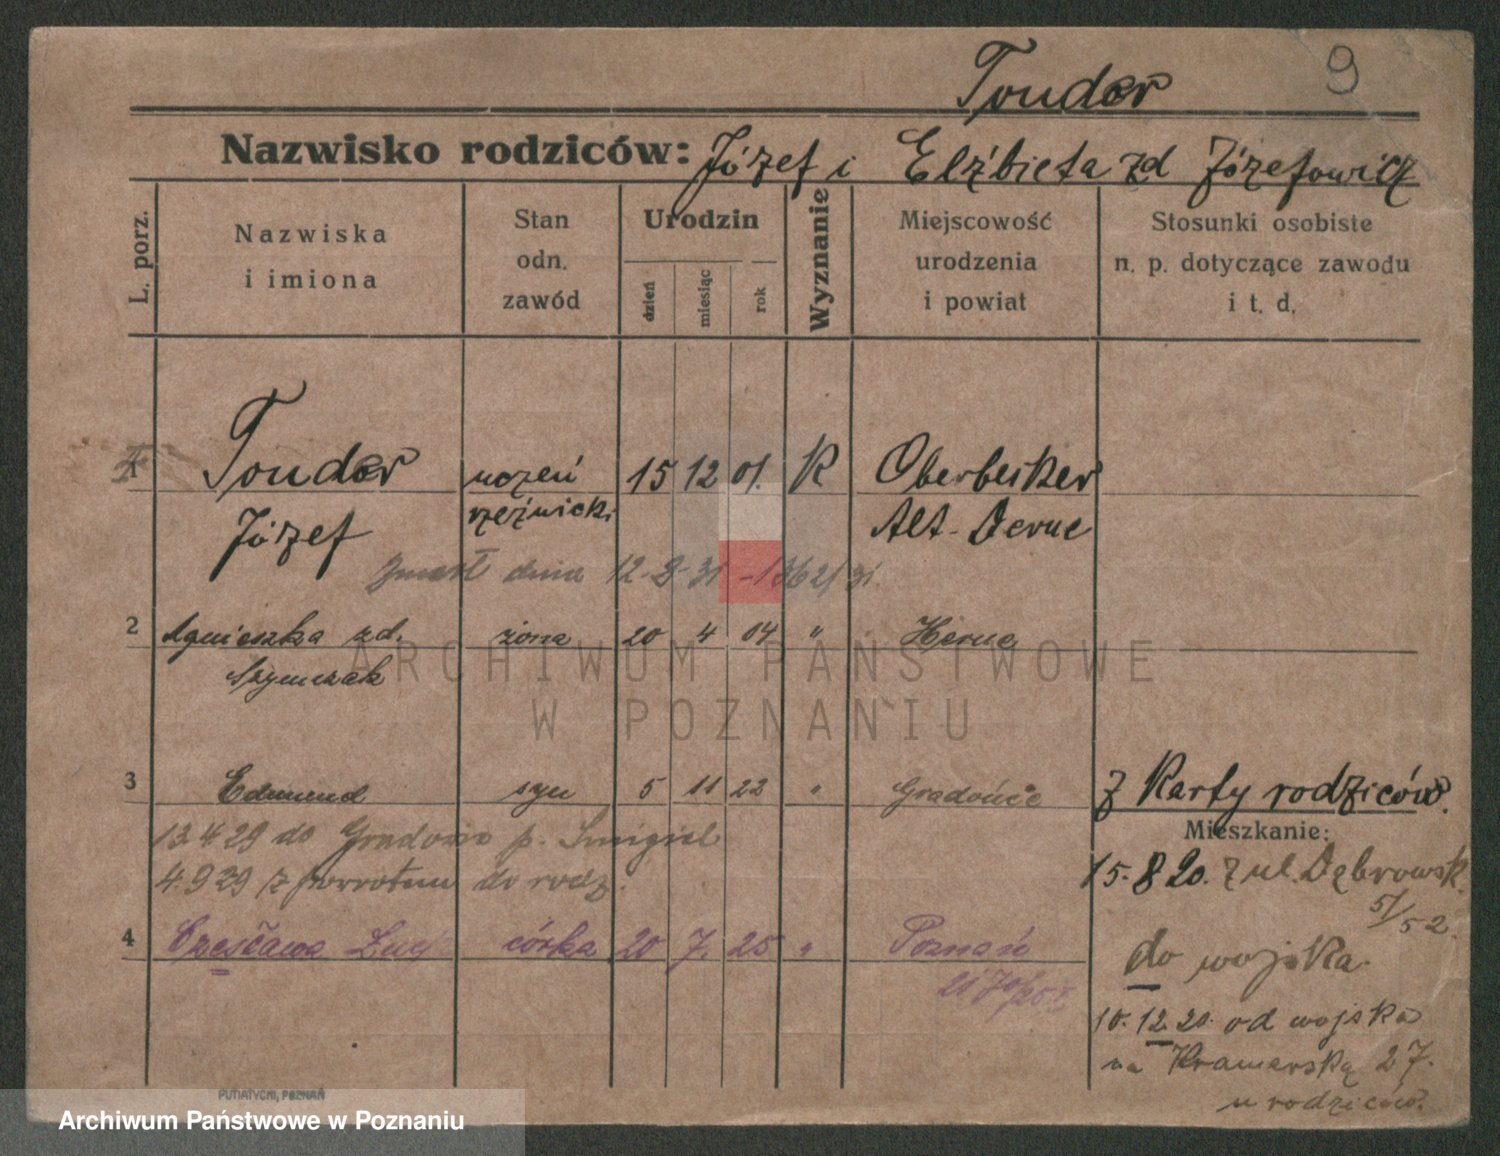 9
Tonder
Nazwisko rodziców: Józef i Elżbieta zd Józefowicz
L. porz.
Nazwiska
i imiona
Stan
odn.
zawód
Urodzin
dzień
miesiąc
rok
Wyznanie
Miejscowość
urodzenia
i powiat
Stosunki osobiste
n. p. dotyczące zawodu
i t. d.
1 Tonder uczeń 15 12 01. K Oberbeker
Józef rzeźnicki Alt-Derne
Zmarł dnia 12-8-31 -1362/31.
2 Agnieszka zd. żona 20 4 04 " Herne
Szymczak
3 Edmund syn 5 11 22 " Gradowice z Karty rodziców.
Mieszkanie:
13.4 29 do Gradowic p. Śmigiel
15.8 20. z ul. Dąbrowsk.
4.9 29 z powrotem do rodz.
51/52.
4 Czesława córka 20 7. 25 " Poznań
do wojska.
10.12.20. od wojska
na Kramerską 27.
u rodziców.
ARCHIWUM PAŃSTWOWE
W POZNANIU
PUTIATYCKI, POZNAŃ
Archiwum Państwowe w Poznaniu